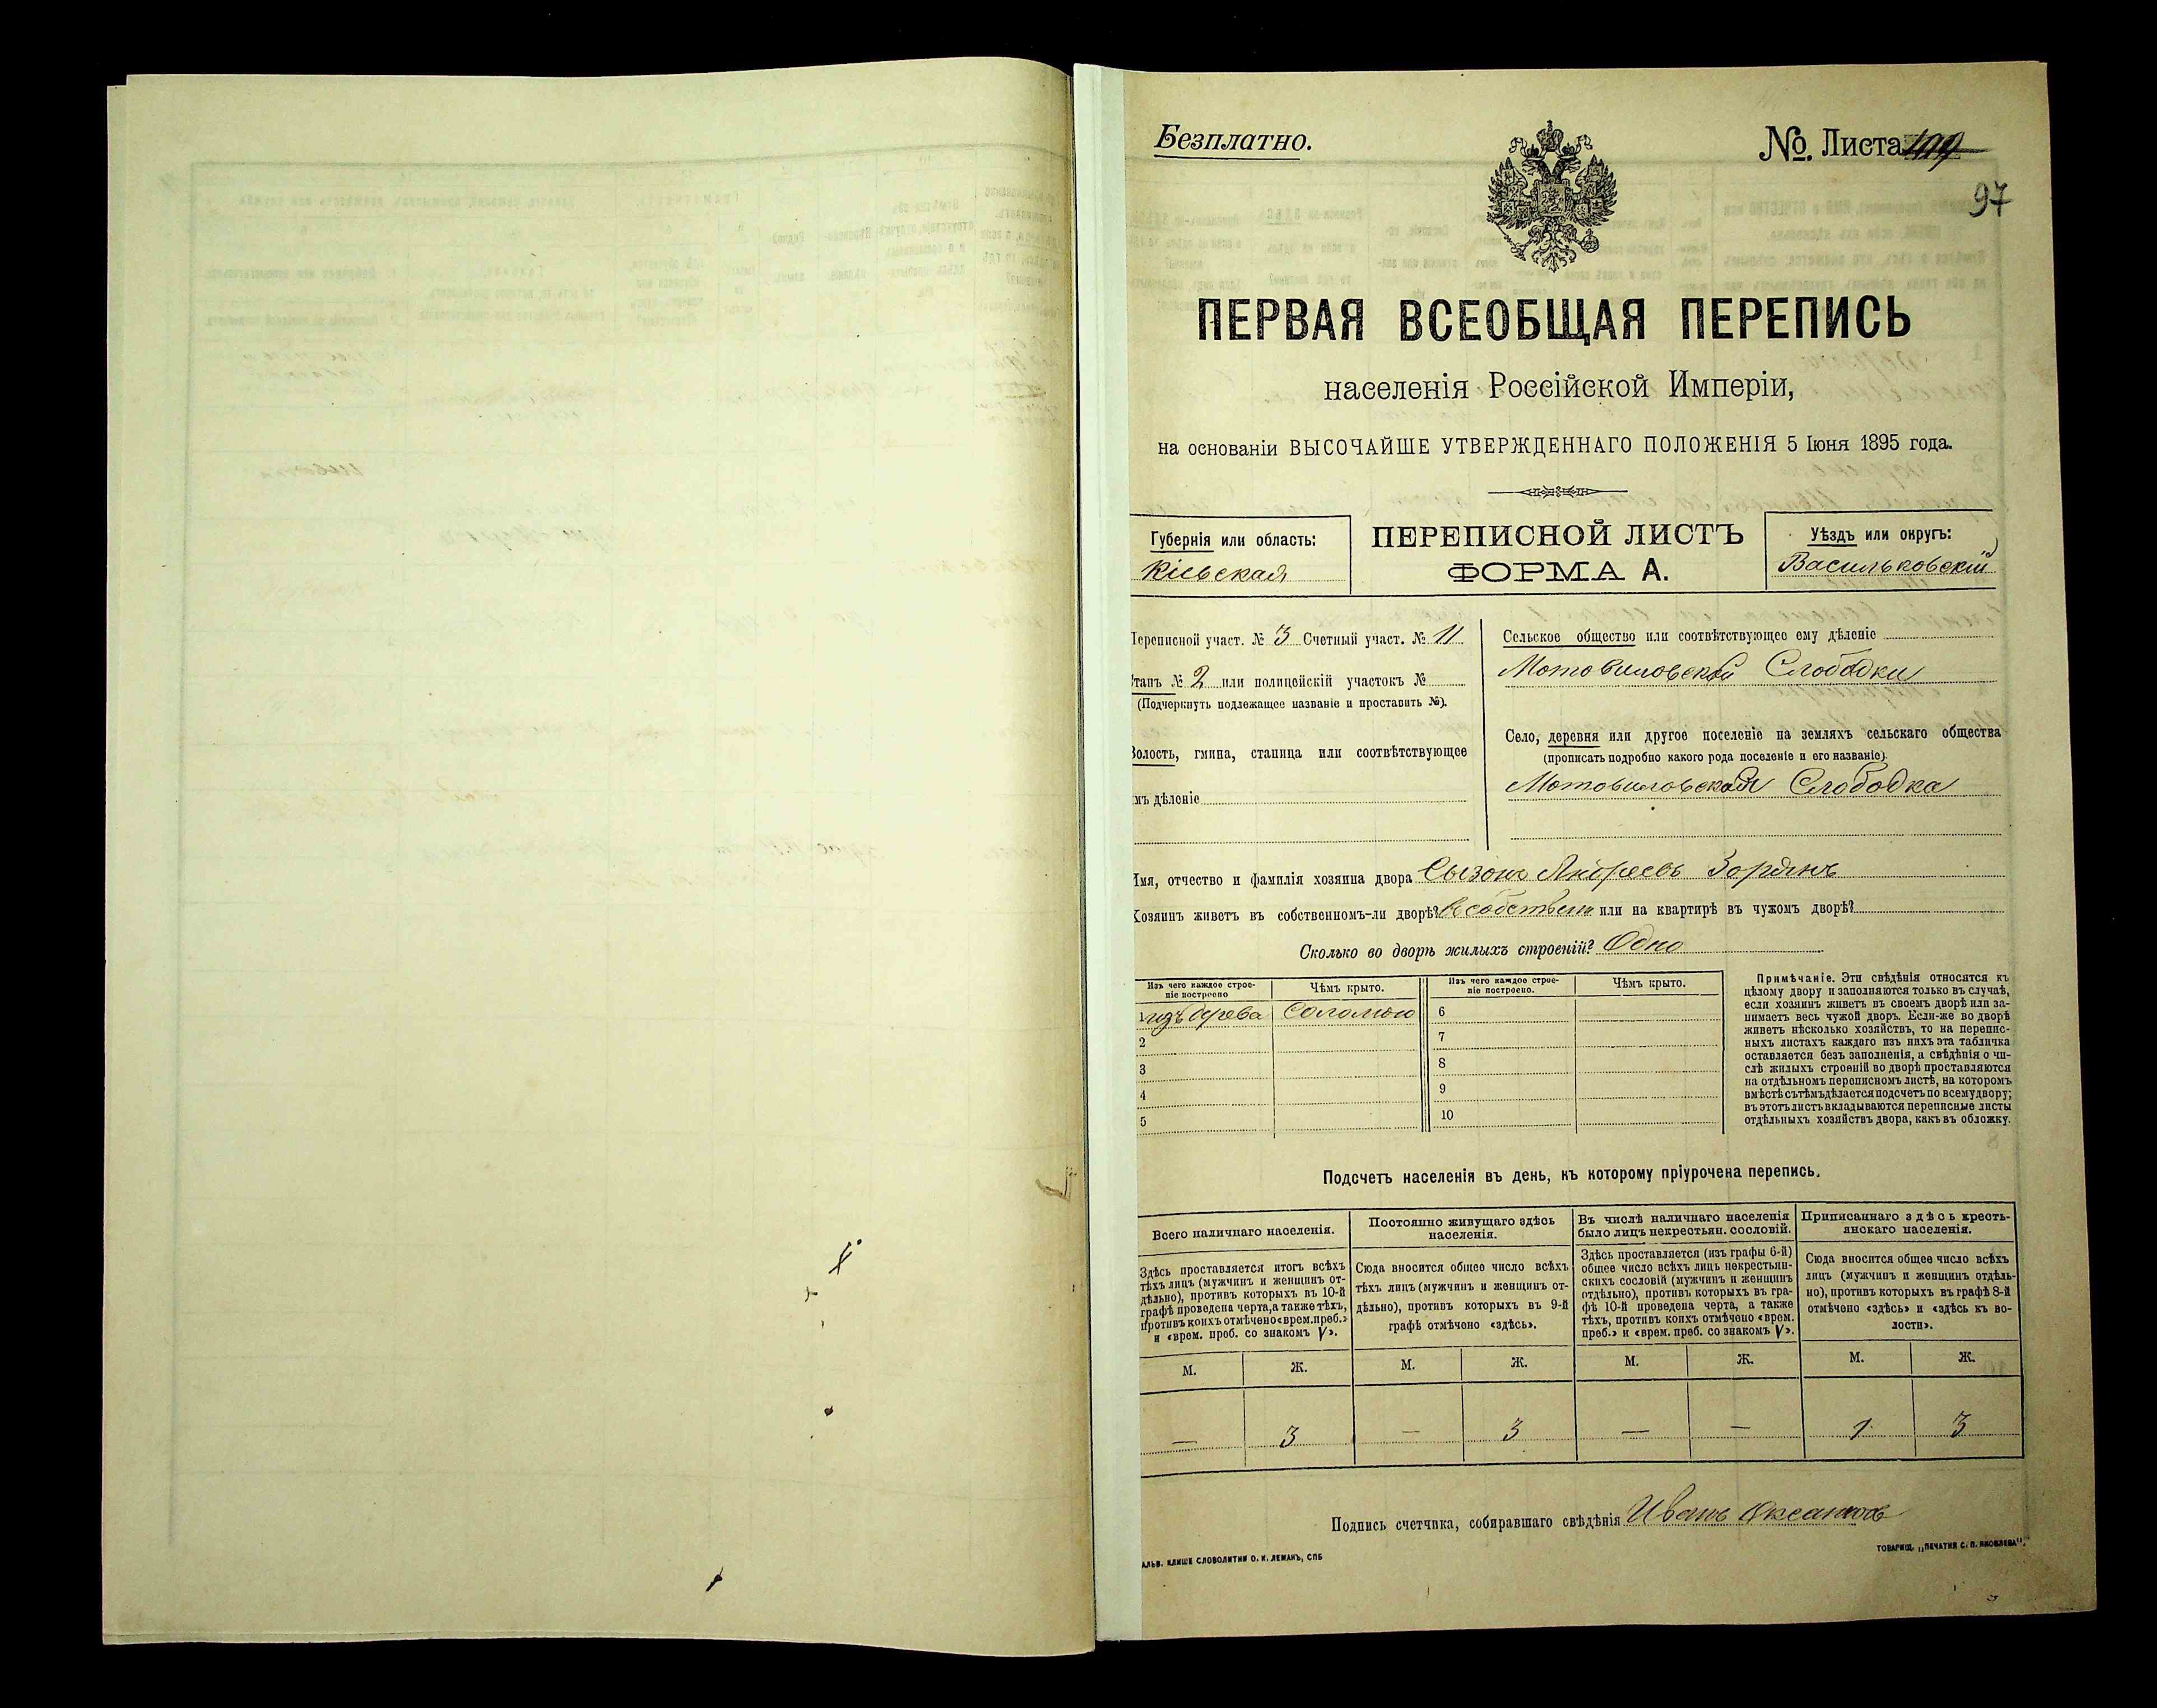 Безплатно.
№ Листа
97
ПЕРВАЯ ВСЕОБЩАЯ ПЕРЕПИСЬ
населенія Россійской Имперіи,
на основаніи ВЫСОЧАЙШЕ УТВЕРЖДЕННАГО ПОЛОЖЕНІЯ 5 Іюня 1895 года.
Губернія или область:
Кіевская
ПЕРЕПИСНОЙ ЛИСТЪ
ФОРМА А.
Уѣздъ или округъ:
Васильковскій
Переписной участ. № 3 Счетный участ. № 11
Станъ № 2 или полицейскій участокъ №
(Подчеркнуть подлежащее названіе и проставить №).
Волость, гмина, станица или соотвѣтствующее
имъ дѣленіе
Сельское общество или соотвѣтствующее ему дѣленіе
Мотовиловской Слободки
Село, деревня или другое поселеніе на земляхъ сельскаго общества
(прописать подробно какого рода поселеніе и его названіе).
Мотовиловская Слободка
Имя, отчество и фамилія хозяина двора Сызонъ Андреевъ
Хозяинъ живетъ въ собственномъ-ли дворѣ? в собствен или на квартирѣ въ чужомъ дворѣ?
Сколько во дворѣ жилыхъ строеній? Одно
Изъ чего каждое строе-
ніе построено
Чѣмъ крыто.
Изъ чего каждое строе-
ніе построено.
Чѣмъ крыто.
1 изъ дерева Соломою 6
2 7
3 8
4 9
5 10
Примѣчаніе. Эти свѣдѣнія относятся къ
цѣлому двору и заполняются только въ случаѣ,
если хозяинъ живетъ въ своемъ дворѣ или за-
нимаетъ весь чужой дворъ. Если-же во дворѣ
живетъ нѣсколько хозяйствъ, то на перепис-
ныхъ листахъ каждаго изъ нихъ эта табличка
оставляется безъ заполненія, а свѣдѣнія о чи-
слѣ жилыхъ строеній во дворѣ проставляются
на отдѣльномъ переписномъ листѣ, на которомъ
вмѣстѣ съ тѣмъ дѣлается подсчетъ по всему двору;
въ этотъ листъ вкладываются переписные листы
отдѣльныхъ хозяйствъ двора, какъ въ обложку.
Подсчетъ населенія въ день, къ которому пріурочена перепись.
Всего наличнаго населенія.
Здѣсь проставляется итогъ всѣхъ
тѣхъ лицъ (мужчинъ и женщинъ от-
дѣльно), противъ которыхъ въ 10-й
графѣ проведена черта, а также тѣхъ,
противъ коихъ отмѣчено «врем. преб.»
и «врем. преб. со знакомъ V».
Постоянно живущаго здѣсь
населенія.
Сюда вносится общее число всѣхъ
тѣхъ лицъ (мужчинъ и женщинъ от-
дѣльно), противъ которыхъ въ 9-й
графѣ отмѣчено «здѣсь».
Въ числѣ наличнаго населенія
было лицъ некрестьян. сословій.
Здѣсь проставляется (изъ графы 6-й)
общее число всѣхъ лицъ некрестьян-
скихъ сословій (мужчинъ и женщинъ
отдѣльно), противъ которыхъ въ гра-
фѣ 10-й проведена черта, а также
тѣхъ, противъ коихъ отмѣчено «врем.
преб.» и «врем. преб. со знакомъ V».
Приписаннаго здѣсь кресть-
янскаго населенія.
Сюда вносится общее число всѣхъ
лицъ (мужчинъ и женщинъ отдѣль-
но), противъ которыхъ въ графѣ 8-й
отмѣчено «здѣсь» и «здѣсь къ во-
лости».
М. Ж. М. Ж. М. Ж. М. Ж.
— 3 — 3 — — 1 3
Подпись счетчика, собиравшаго свѣдѣнія Иванъ
АЛЬВ. КЛИШЕ СЛОВОЛИТНИ О. И. ЛЕМАНЪ, СПБ
ТОВАРИЩ. „ПЕЧАТНЯ С. П. ЯКОВЛЕВА".